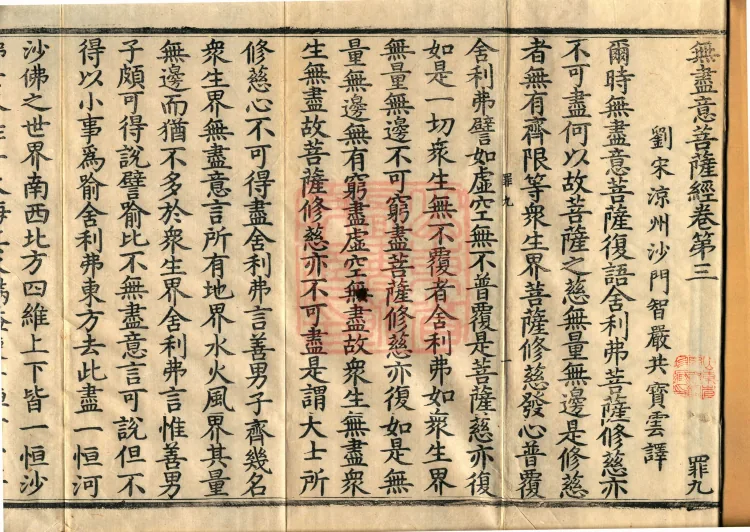 無盡意菩薩經卷第三 罪九
劉宋涼州沙門智嚴共寶雲譯
爾時無盡意菩薩復語舍利弗菩薩修慈亦
不可盡何以故菩薩之慈無量無邊是修慈
者無有齊限等衆生界菩薩修慈發心普覆
罪九 一
舍利弗譬如虛空無不普覆是菩薩慈亦復
如是一切衆生無不覆者舍利弗如衆生界
無量無邊不可窮盡菩薩修慈亦復如是無
量無邊無有窮盡虛空無盡故衆生無盡衆
生無盡故菩薩修慈亦不可盡是謂大士所
修慈心不可得盡舍利弗言善男子齊幾名
衆生界無盡意言所有地界水火風界其量
無邊而猶不多於衆生界舍利弗言惟善男
子頗可得說譬喻比不無盡意言可說但不
得以小事爲喻舍利弗東方去此盡一恒河
沙佛之世界南西北方四維上下皆一恒沙